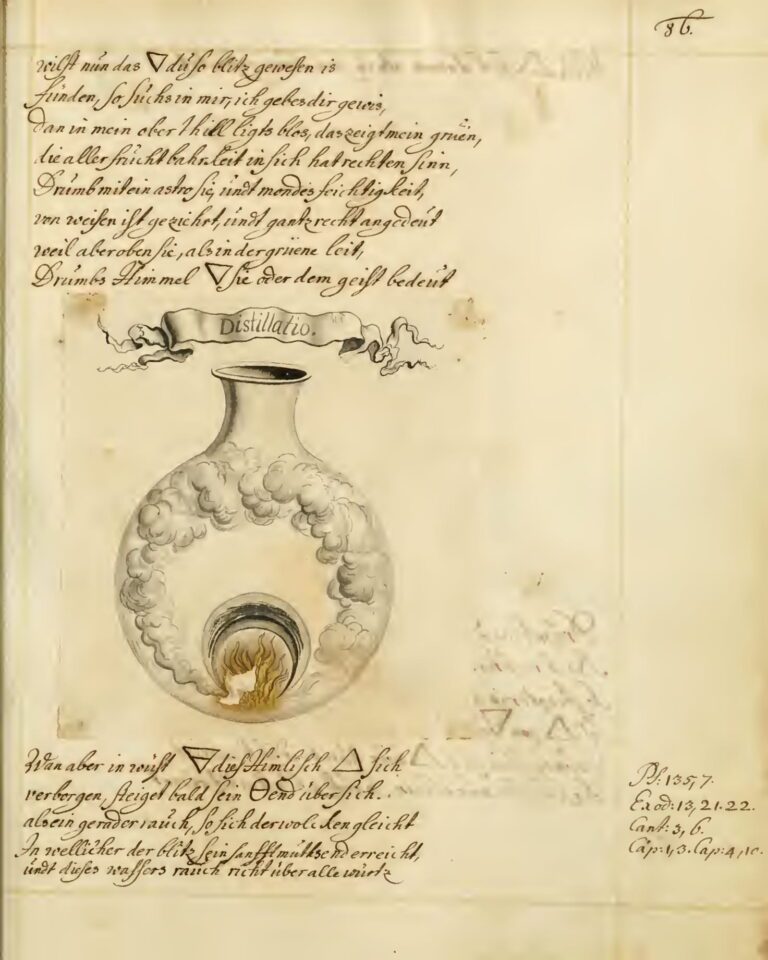 86.
wilst nun das 🜄 du so blitz gewesen is
finden, so suchs in mir, ich gebes dir gewis,
dan in mein ober thill ligts blos, das zeigt mein gruën,
die aller frucht bahrkeit in sich hat rechten sinn,
Drumb mit ein astro sie, undt mondes feichtigkeit,
von weisen ist geziehrt, undt gantz recht angedeut
weil aber oben sie, als in der gruene leit,
Drumbs Himmel 🜄 sie oder dem geist bedeut
Distillatio.
Wan aber in wust 🜃 dies Himlisch 🜂 sich
verborgen, steiget bald sein 🜔 end über sich.
als ein gerader rauch, so sich der wolcken gleicht
In wellicher der blitz sein sanfftmuths end erreicht,
undt dieses wassers rauch richt über alle wurtz
Ps: 135, 7.
Exod: 13, 21. 22.
Cant: 3, 6.
Cap: 1, 3. Cap: 4, 10.